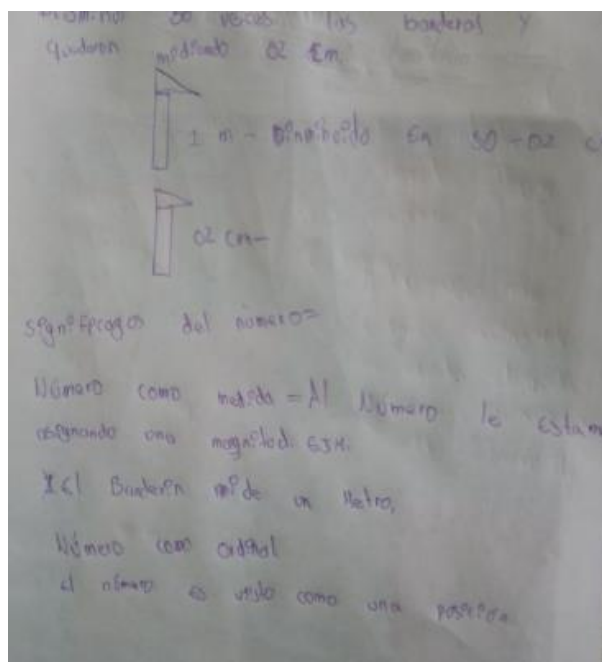 50 veces las banderas y
quedaron midiendo 02 cm.
1 m - Diminuido en 50 - 02 c
02 cm-
significados del número=
Número como medida = Al Número le estam
asignando una magnitud. EJM.
1 El Banderin mide un Metro.
Número como ordinal
el número es visto como una posición